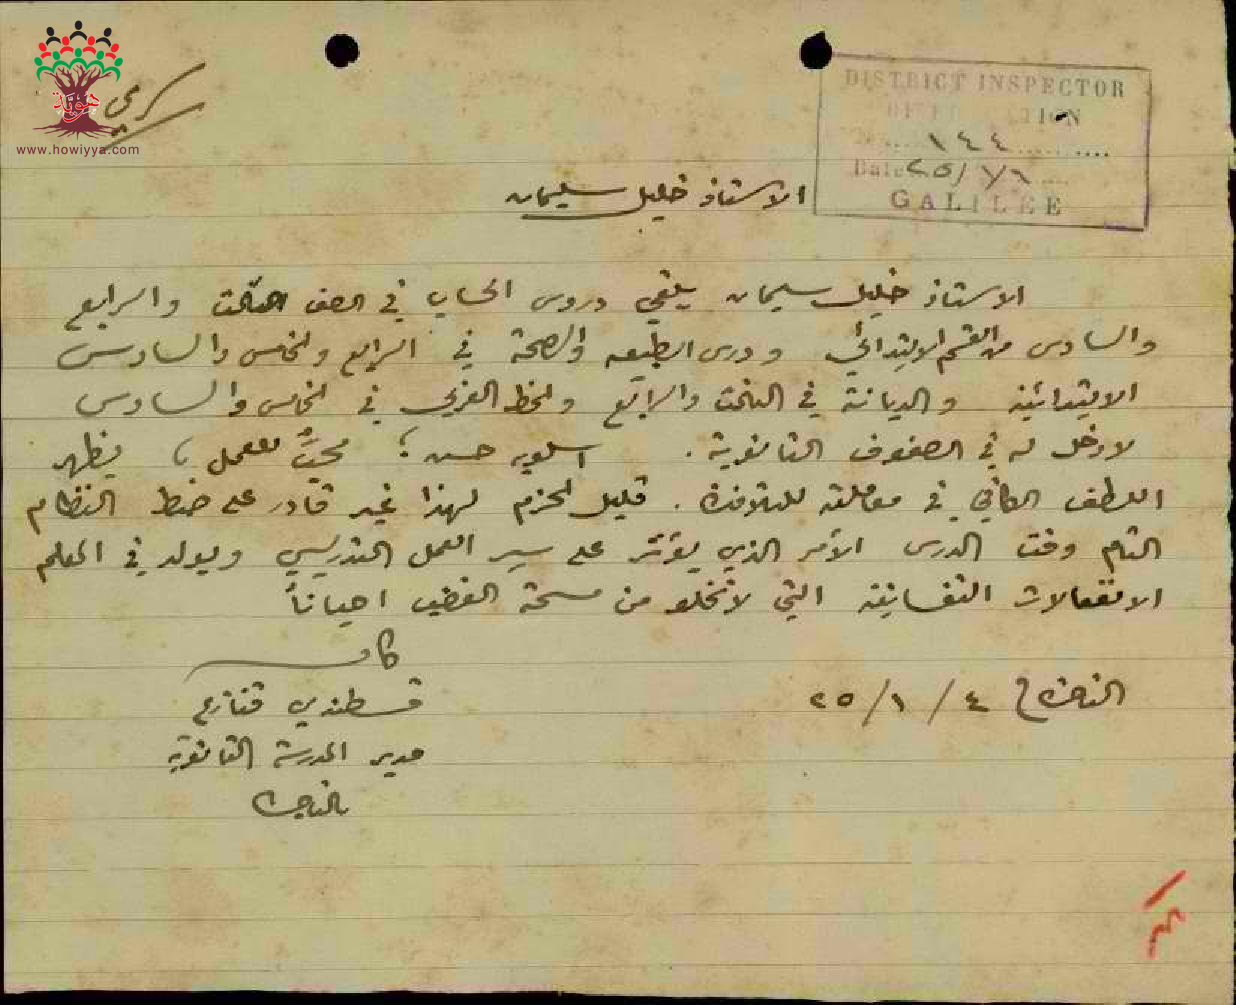 هوية
www.howiyya.com
سري
DISTRICT INSPECTOR
OF EDUCATION
No ..... ١٤٤ ..........
Date ٢٥/١/٦ ....
GALILEE
الاستاذ خليل سليمان
الاستاذ خليل سليمان يلقي دروس الحساب في الصف الثالث والرابع
والسادس من القسم الابتدائي ودرس الطبيعه والصحة في الرابع والخامس والسادس
الابتدائية والديانة في الثالث والرابع والخط العربي في الخامس والسادس
لا دخل له في الصفوف الثانوية. اسلوبه حسن؛ محبٌ للعمل، يظهر
اللطف الكافي في معاملته للتلامذة. قليل الحزم لهذا غير قادر على ضبط النظام
التام وقت الدرس الأمر الذي يؤثر على سير العمل التدريسي ويولد في المعلم
الانفعالات النفسانية التي لا تخلو من مسحة الغضب احياناً
قسطندي قنازع
الناصرة ٤ / ١ / ٢٥
مدير المدرسة الثانوية
بالناصرة